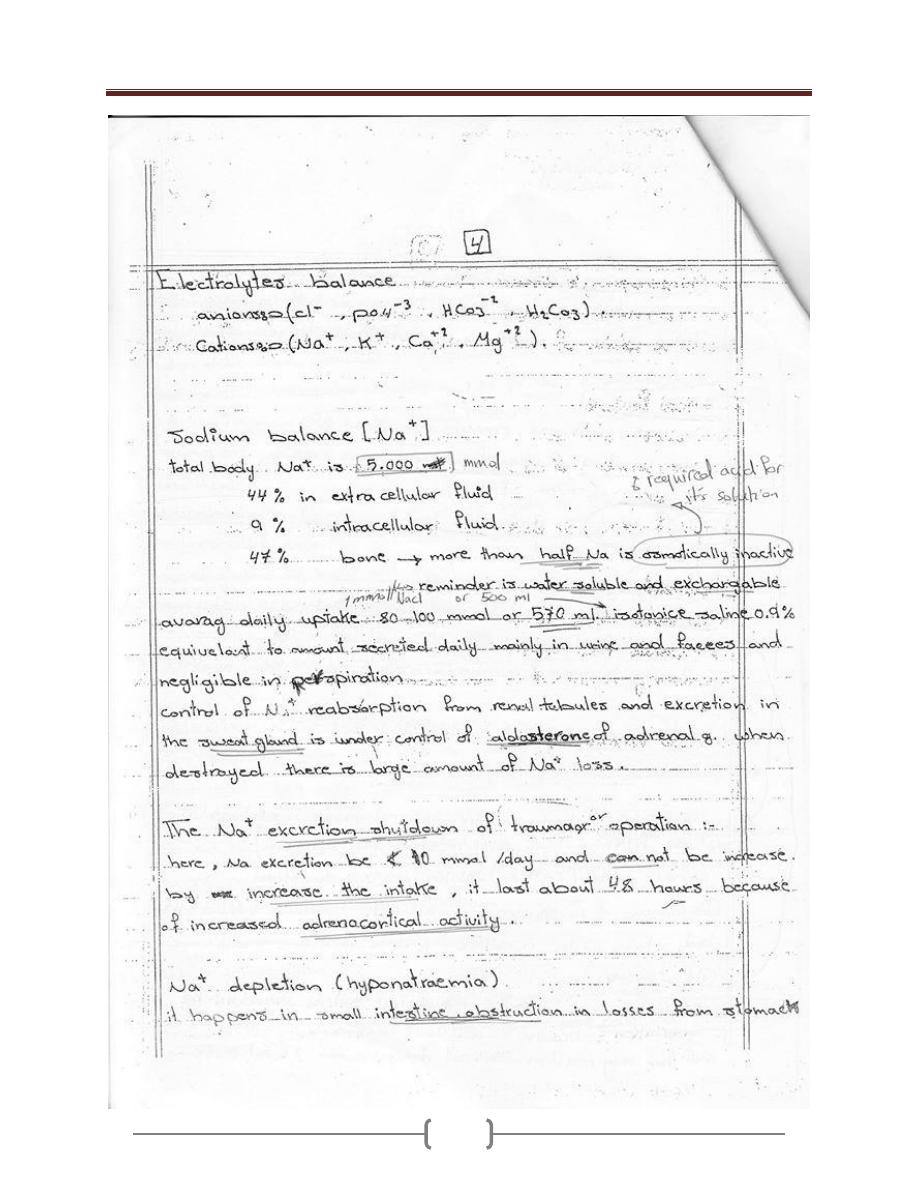 4
Electrolytes balance
anions⇒(cl⁻ , po4⁻³ , HCo3⁻² , H2Co3).
Cations⇒(Na⁺ , K⁺ , Ca⁺² , Mg⁺²).
Sodium balance [Na⁺]
total body Na⁺ is 5.000 mmol
44% in extracellular fluid
required acid for
its solution
9 % intracellular fluid.
47% bone → more than half Na is osmotically inactive
↳ reminder is water soluble and exchargable
1 mmol/ Nacl or 500 ml
avarag daily uptake 80-100 mmol or 570 ml. isotonice saline 0.9%
equivelant to amount secreted daily mainly in urine and faeces and
negligible in perspiration
control of Na⁺ reabsorption from renal tubules and excretion in
the sweat gland is under control of aldosterone of adrenal g. when
destrayed there is large amount of Na⁺ loss.
The Na⁺ excretion shutdown of trauma or operation :-
here, Na excretion be < 10 mmol /day and can not be increase.
by increase the intake , it last about 48 hours because
of increased adrenocortical activity .
Na⁺ depletion (hyponatraemia)
it happens in small intestine obstruction in losses from stomach